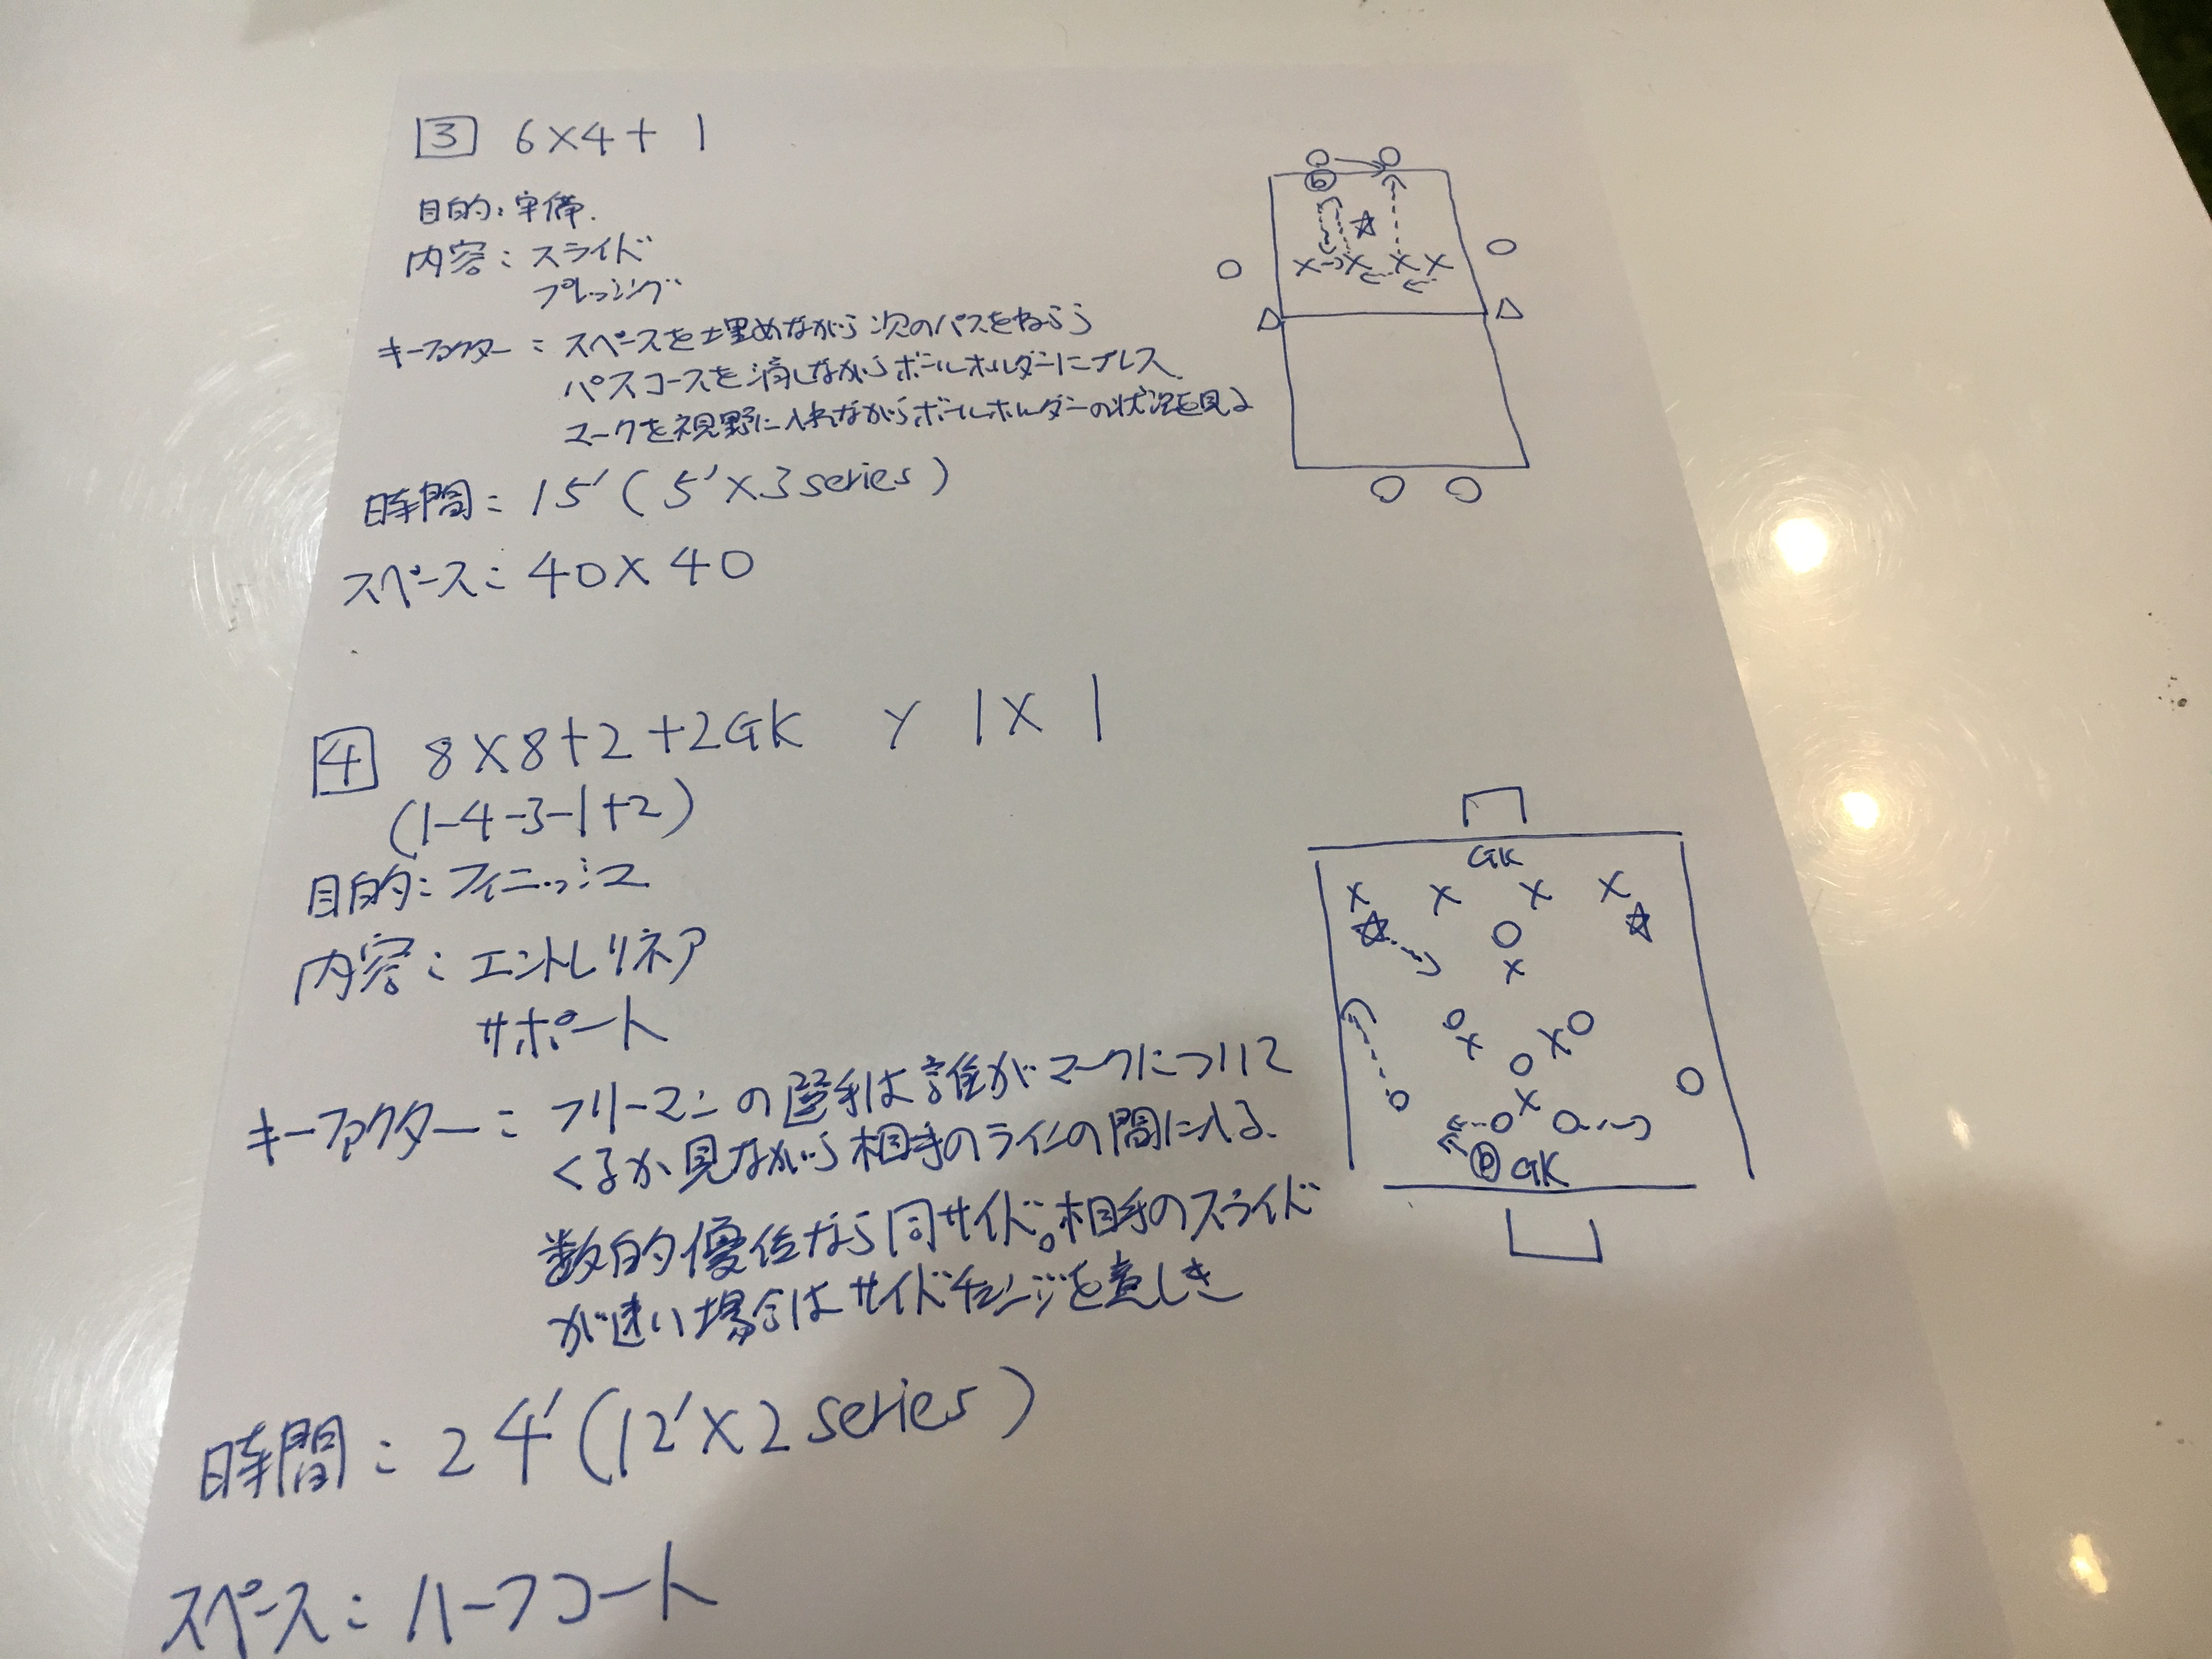 3 6×4+1
目的：守備.
内容：スライド
プレッシング
キーファクター：スペースを埋めながら次のパスをねらう
パスコースを消しながらボールホルダーにプレス
マークを視野に入れながらボールホルダーの状況を見る
時間：15′(5′×3 series)
スペース：40×40
b
4 8×8+2+2GK y 1×1
(1-4-3-1+2)
目的：フィニッシュ
内容：エントレリネア
サポート
キーファクター：フリーマンの選手は誰がマークについて
くるか見ながら相手のラインの間に入る.
数的優位なら同サイド。相手のスライド
が速い場合はサイドチェンジを意しき
時間：24′(12′×2 series)
スペース：ハーフコート
GK
b GK